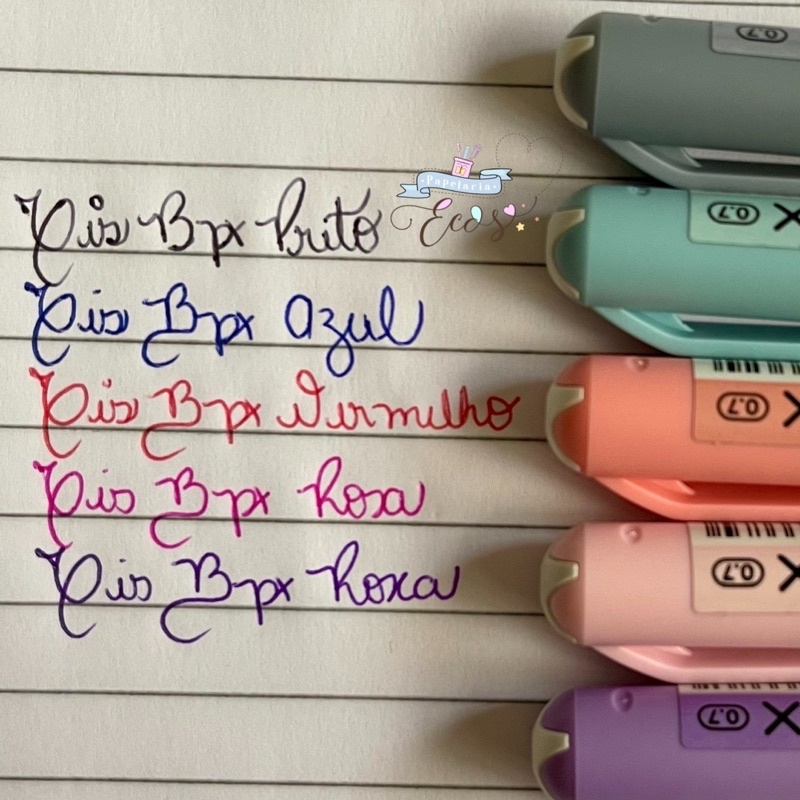 0.7
Papelaria
Ecos
0.7 X
Cis Bpx Preto
Cis Bpx Azul
0.7 X
Cis Bpx Vermelho
Cis Bpx Rosa
0.7 X
Cis Bpx Roxa
0.7 X